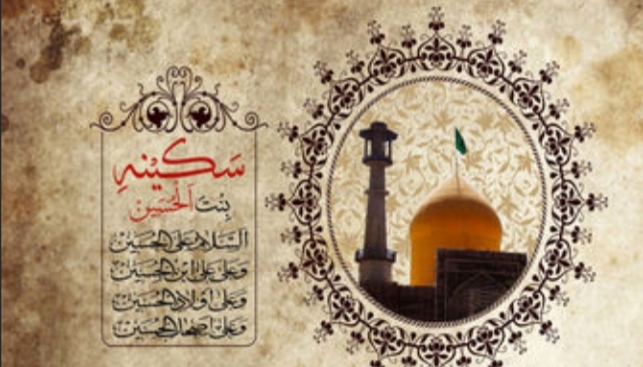 سَكيْنه
بِنْتَ الْحُسَيْن
السَّلامُ عَلَى الْحُسَيْن
وَعَلى عَلِىِّ ابْنِ الْحُسَيْن
وَعَلى اَوْلادِ الْحُسَيْن
وَعَلى اَصْحابِ الْحُسَيْن